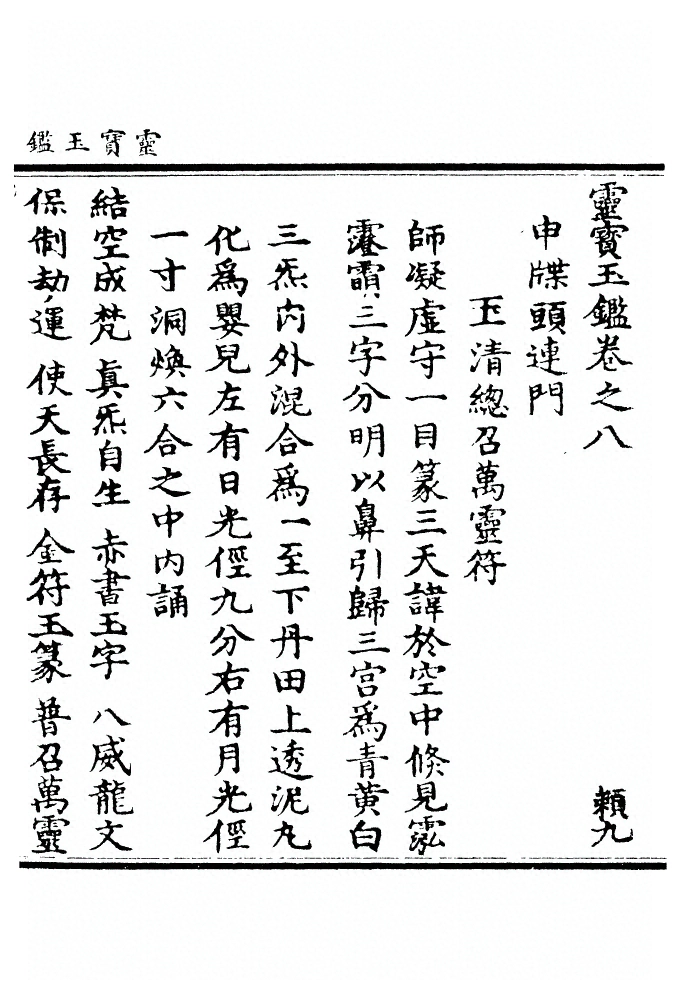 靈寶玉鑑
靈寶玉鑑卷之八 賴九
申牒頭連門
玉清總召萬靈符
師凝虛守一目篆三天諱於空中倏見霐
霳霣三字分明以鼻引歸三宮爲青黃白
三炁內外混合爲一至下丹田上透泥丸
化爲嬰兒左有日光徑九分右有月光徑
一寸洞煥六合之中內誦
結空成梵 眞炁自生 赤書玉字 八威龍文
保制劫運 使天長存 金符玉篆 普召萬靈